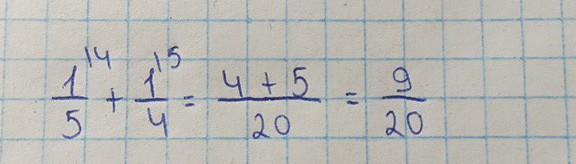 1/5 ^14 + 1/4 ^15 = (4 + 5)/20 = 9/20